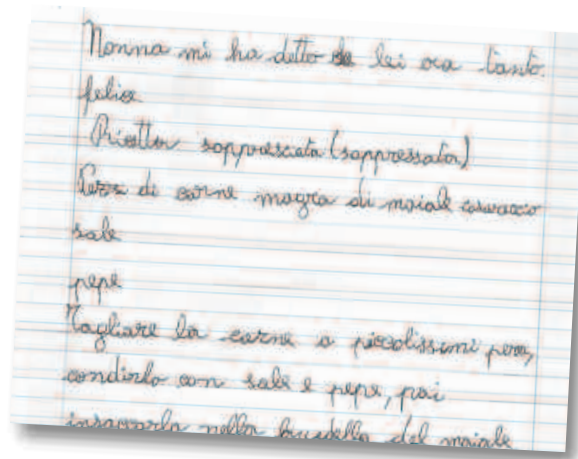 Nonna mi ha detto che lei era tanto
felice.
Ricetta soppresciata (soppressata)
Pezzi di carne magra di maiale
sale
pepe
Tagliare la carne a piccolissimi pezzi,
condirla con sale e pepe, poi
insaccarla nella budella del maiale